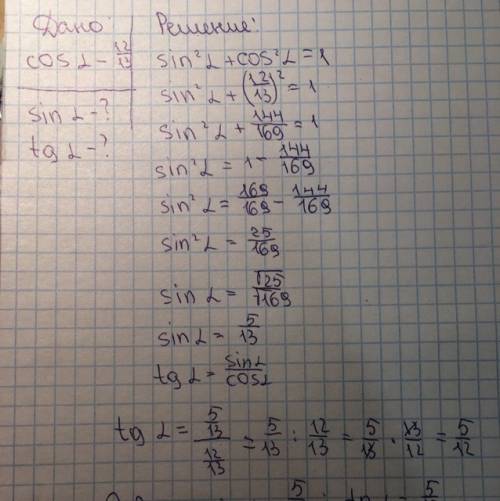 Дано
cos α – 12/13
sin α – ?
tg α – ?
Решение:
sin² α + cos² α = 1
sin² α + (12/13)² = 1
sin² α + 144/169 = 1
sin² α = 1 – 144/169
sin² α = 169/169 – 144/169
sin² α = 25/169
sin α = √25/√169
sin α = 5/13
tg α = sin α/cos α
tg α = 5/13 / 12/13 = 5/13 : 12/13 = 5/13 · 13/12 = 5/12